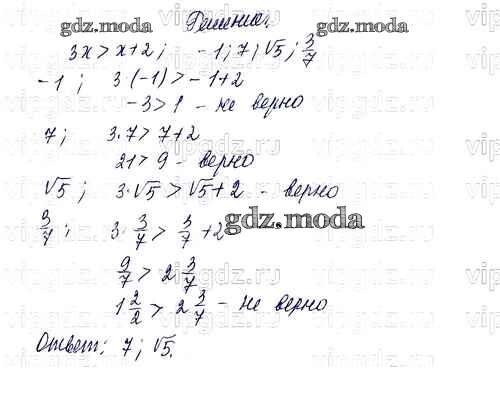 Решение.
gdz.moda gdz.moda
3x > x+2; -1; 7; √5; 3/7
-1; 3·(-1) > -1+2
-3 > 1 - не верно
7; 3·7 > 7+2
21 > 9 - верно
√5; 3·√5 > √5+2 - верно
3/7; 3·3/7 > 3/7+2
gdz.moda
9/7 > 2 3/7
1 2/2 > 2 3/7 - не верно
Ответ: 7; √5.